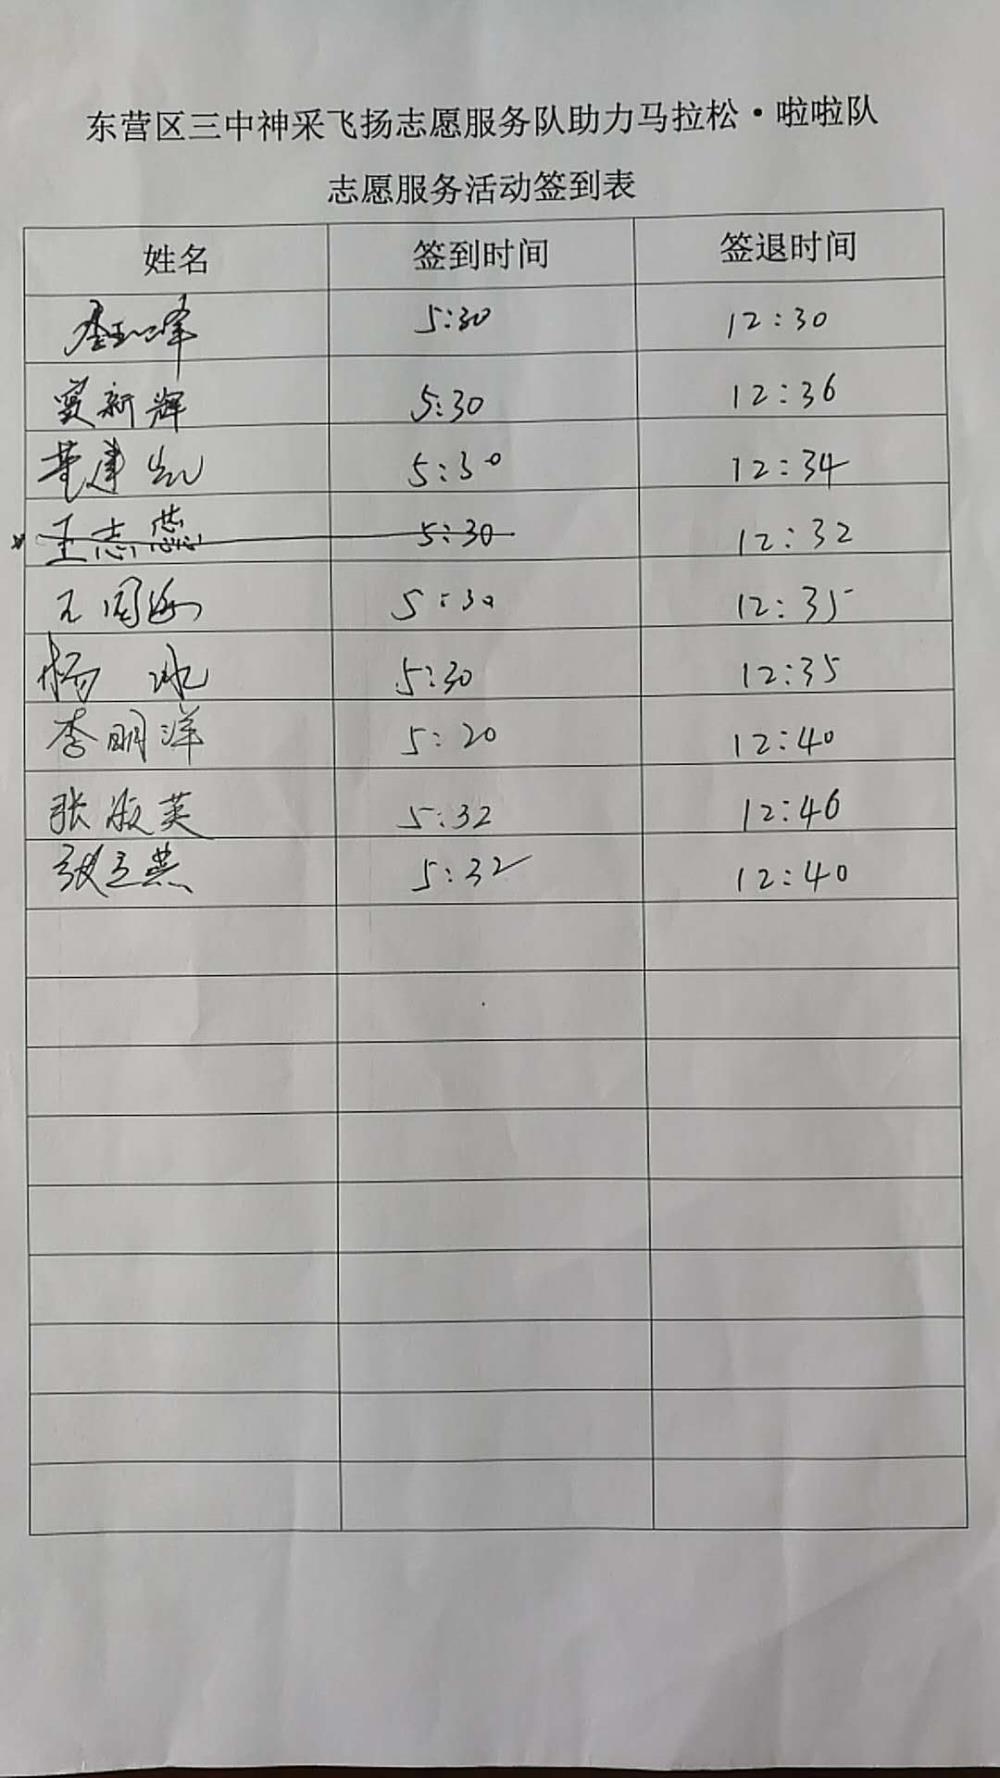 东营区三中神采飞扬志愿服务队助力马拉松·啦啦队
志愿服务活动签到表
姓名 签到时间 签退时间
5:30 12:30
窦新辉 5:30 12:36
董建凯 5:30 12:34
王志蕊 5:30 12:32
5:30 12:35
杨冰 5:30 12:35
李明洋 5:20 12:40
张淑英 5:32 12:46
张立燕 5:32 12:40